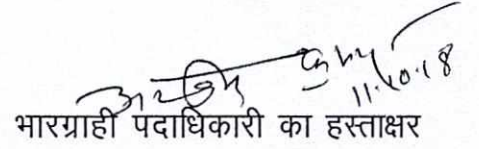 11.10.18
भारग्राही पदाधिकारी का हस्ताक्षर